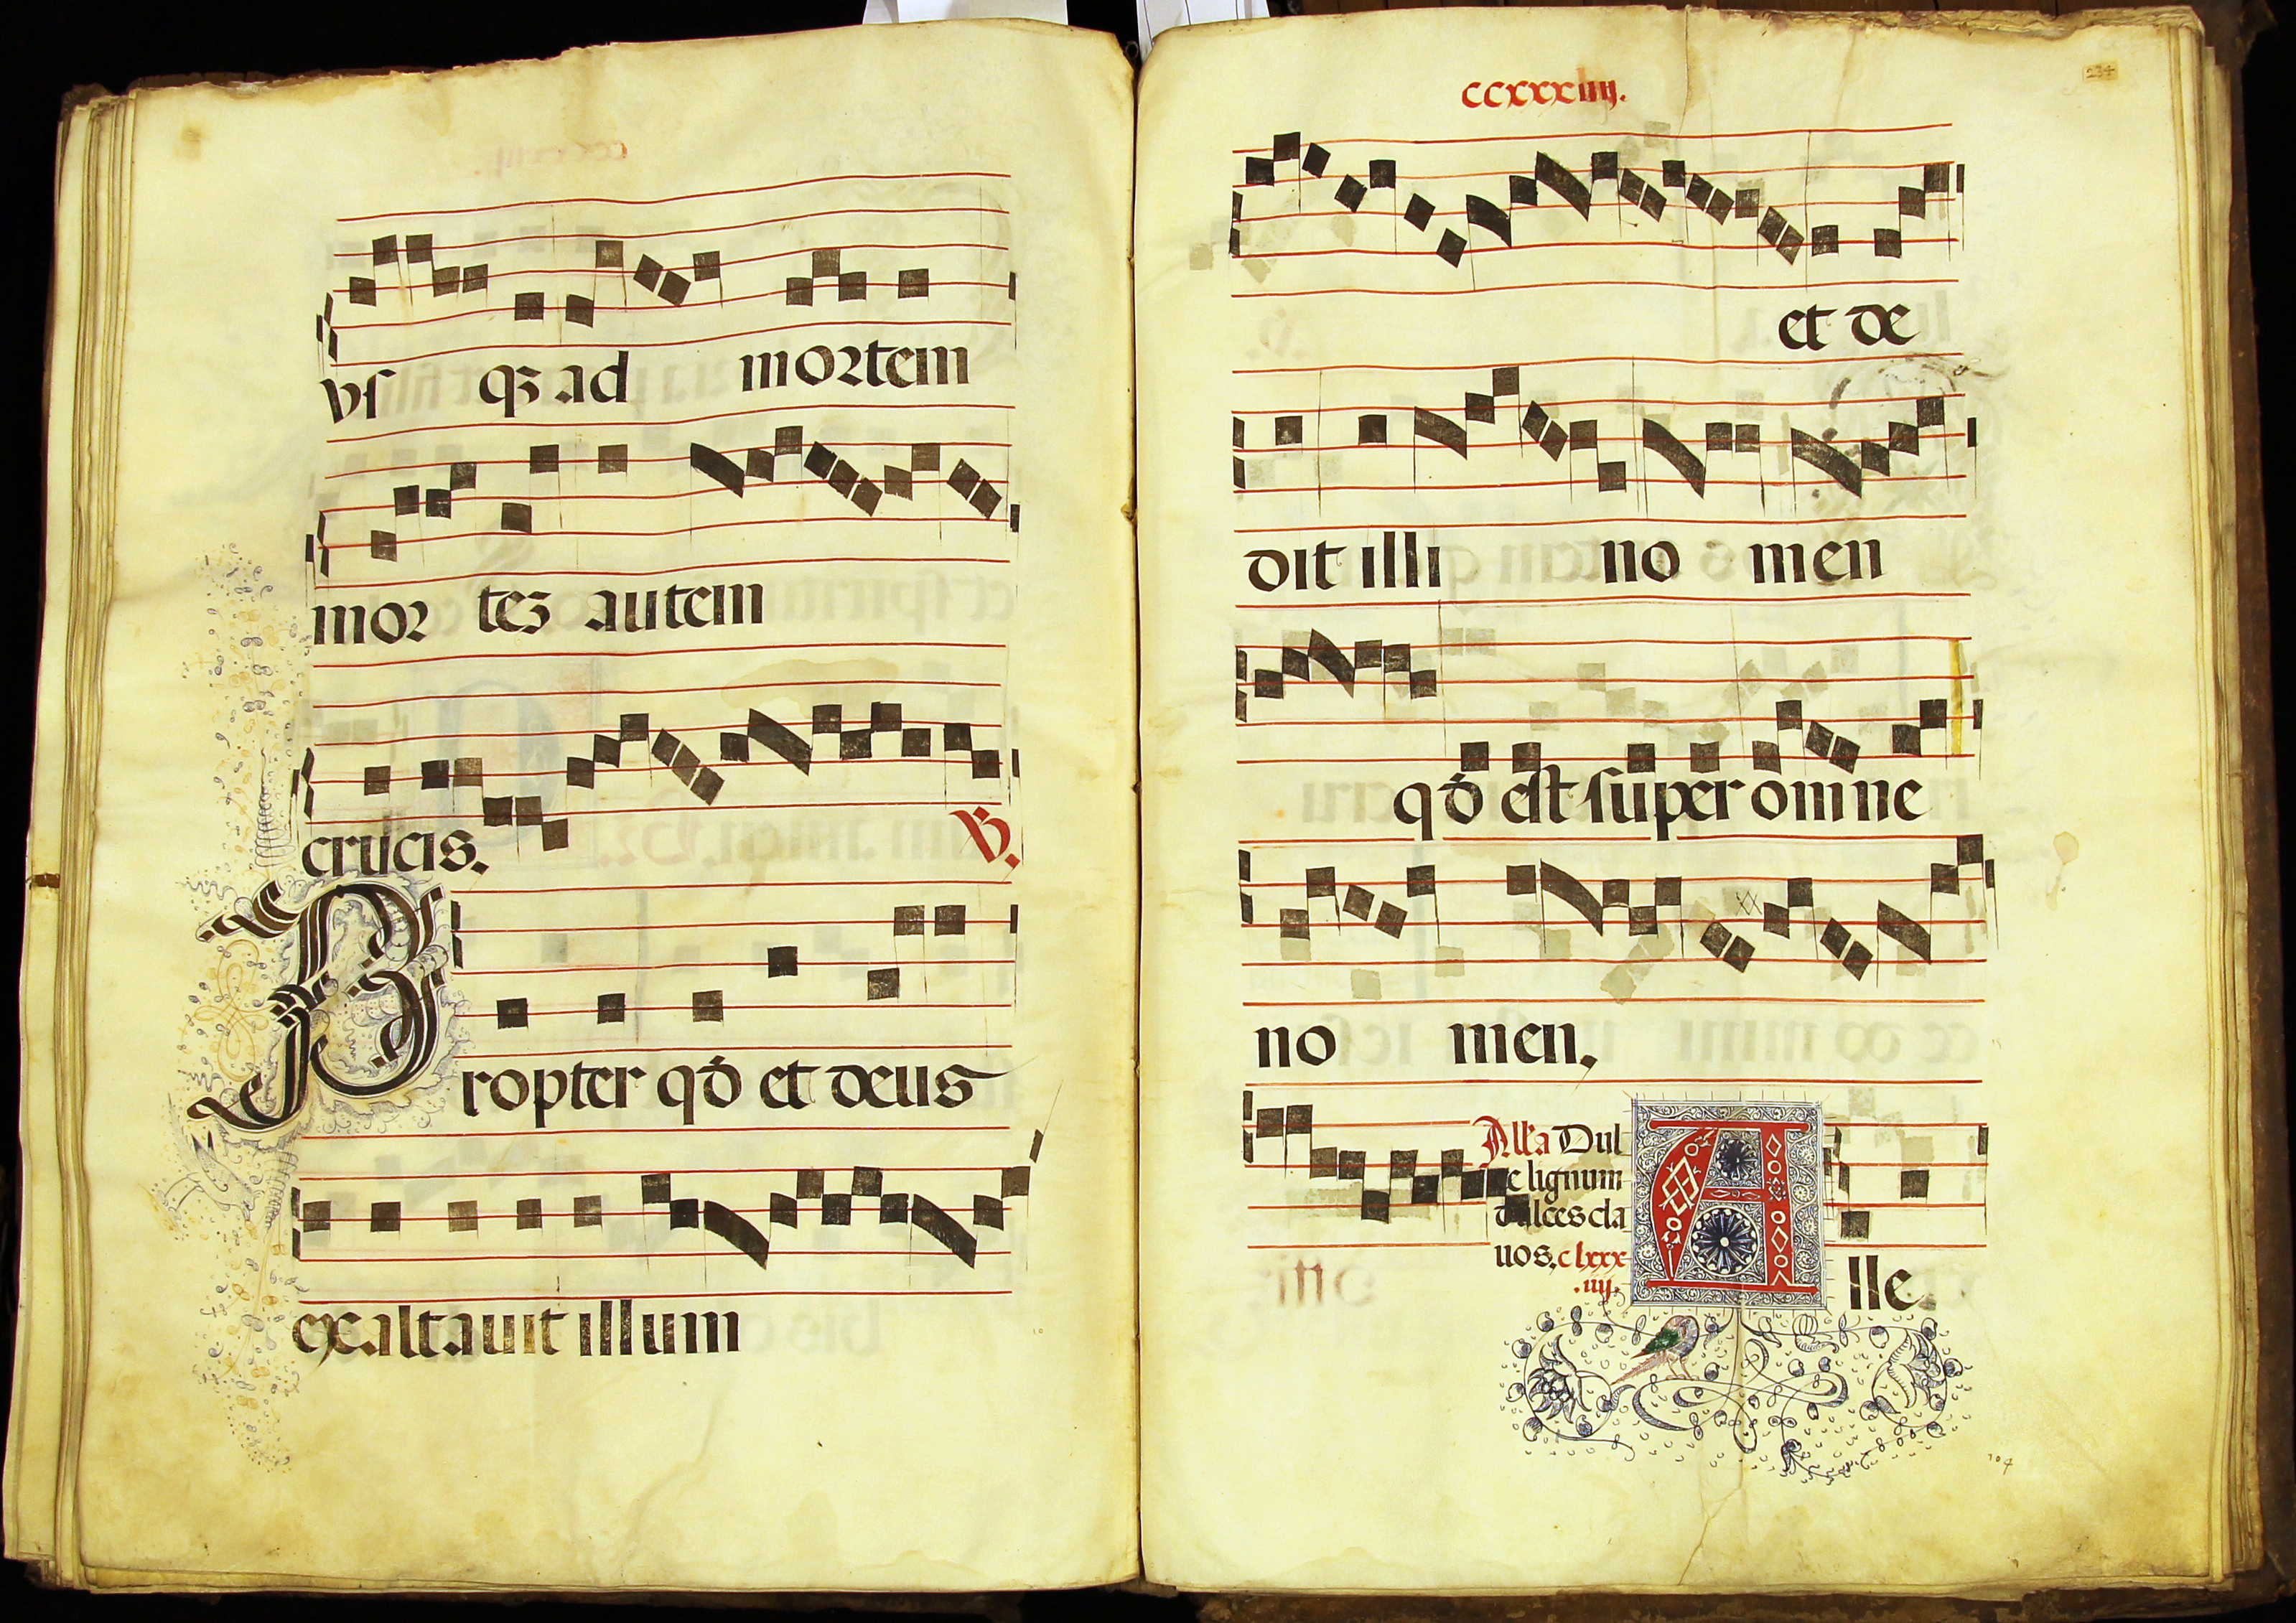 vſ qꝫ ad mortem
mor teꝫ autem
crucis. ℣.
Propter qđ et deus
exaltauit illum
ccxxxiiij.
234
et de
dit illi no men
qđ est super omne
no men.
Alľa Dul
ce lignum
dulces cla
uos. clxxx
.iiij.
Alle.
104